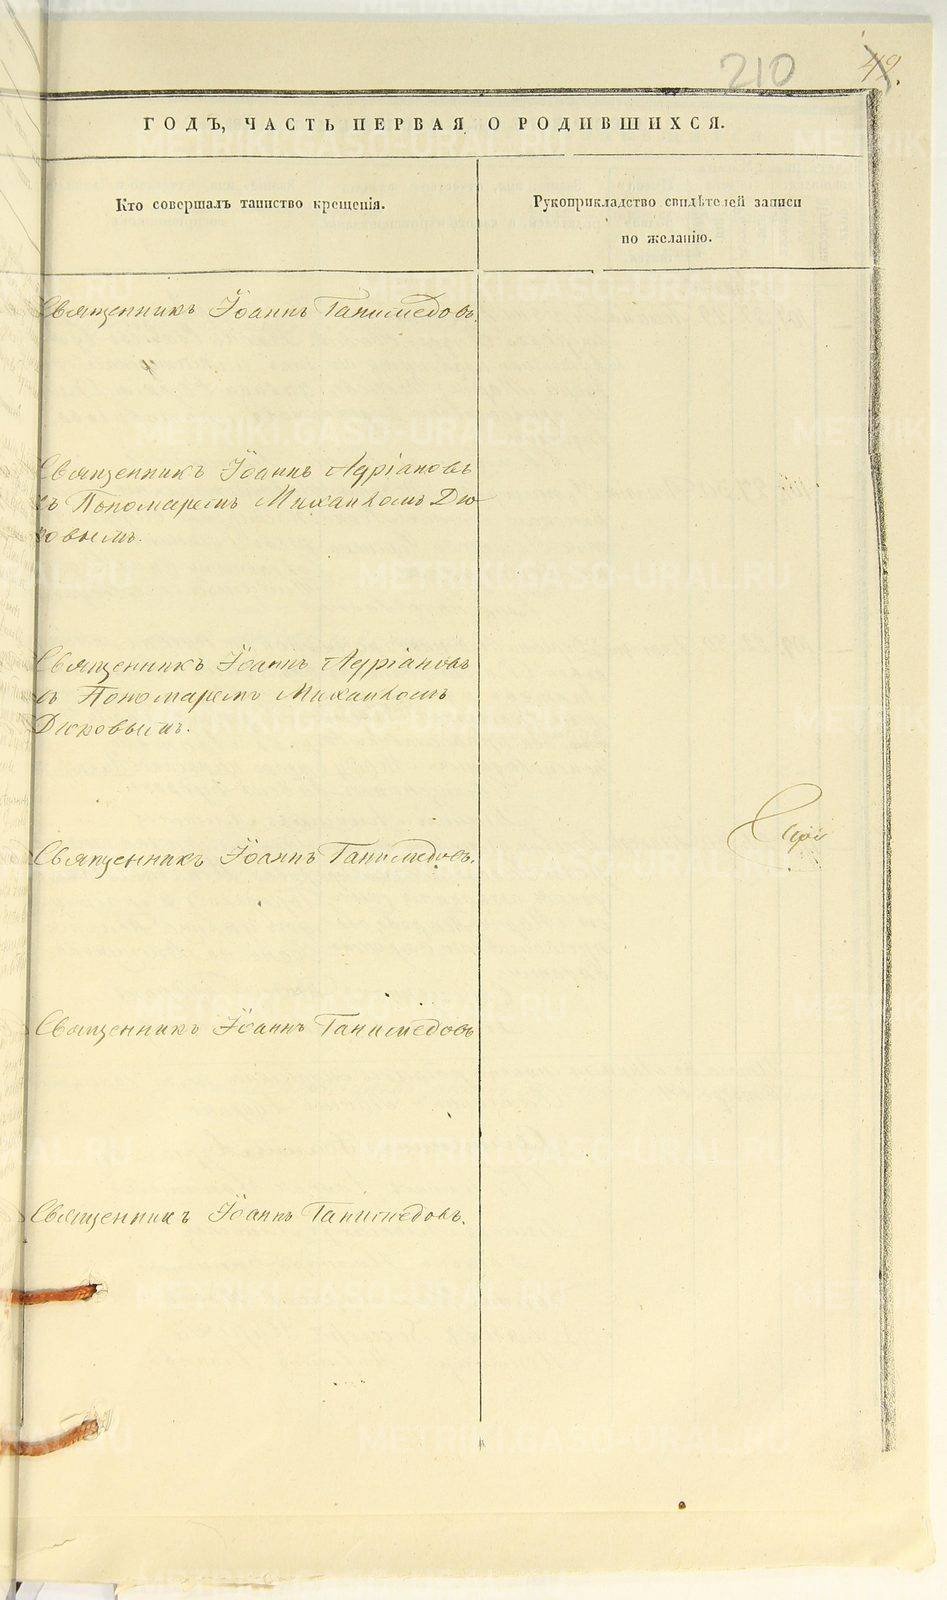 210
49.
ГОДЪ, ЧАСТЬ ПЕРВАЯ, О РОДИВШИХСЯ.
Кто совершалъ таинство крещенія.
Рукоприкладство свидѣтелей записи
по желанію.
Священникъ Іоаннъ Ганимедовъ.
Священникъ Іоаннъ Адріановъ
съ Пономаремъ Михаиломъ Дю-
ковымъ.
Священникъ Іоаннъ Адріановъ
съ Пономаремъ Михаиломъ
Дюковымъ.
Священникъ Іоаннъ Ганимедовъ.
Священникъ Іоаннъ Ганимедовъ
Священникъ Іоаннъ Ганимедовъ.
METRIKI.GASO-URAL.RU